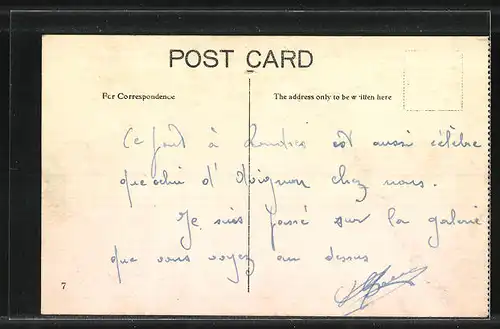 POST CARD
For Correspondence
The address only to be written here
Ce pont à Londres est aussi célèbre
que celui d'Avignon chez nous.
Je suis passé sur la galerie
que vous voyez au dessus
7